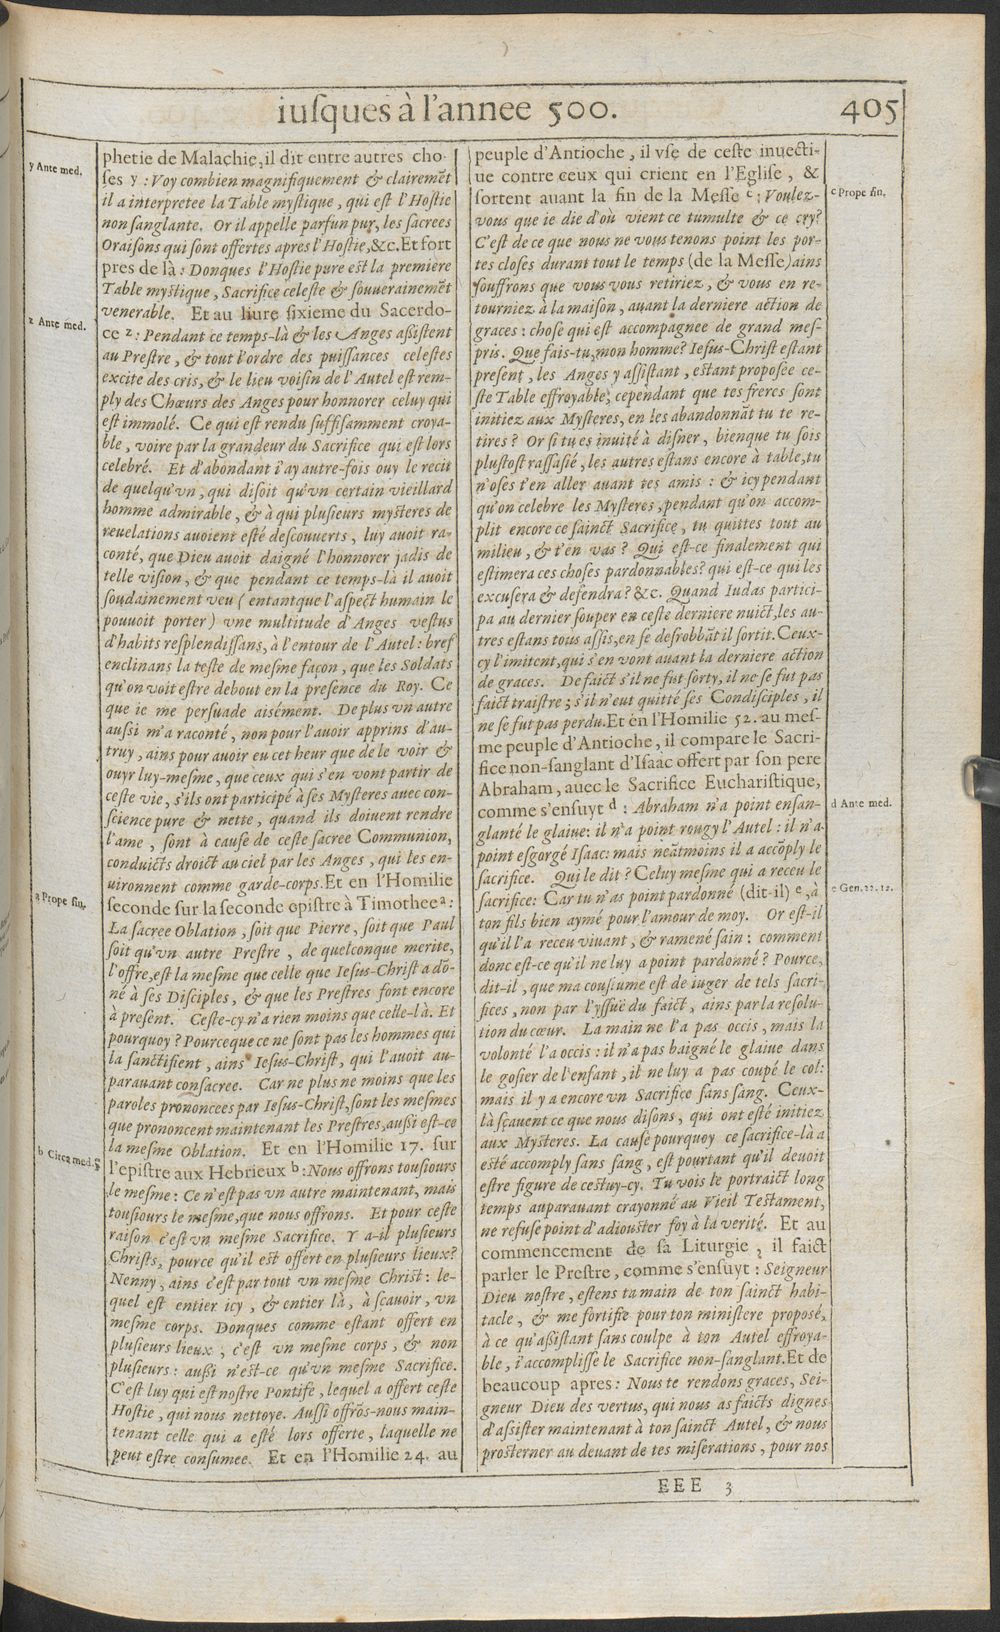 iuſques à l'annee 500.
405
y Ante med.
phetie de Malachie, il dit entre autres cho-
ſes y : Voy combien magnifiquement & clairemēt
il a interpretee la Table myſtique, qui eſt l'Hoſtie
non ſanglante. Or il appelle parfun pur, les ſacrees
Oraiſons qui ſont offertes apres l'Hoſtie, &c. Et fort
pres de là : Donques l'Hoſtie pure eſt la premiere
Table myſtique, Sacrifice celeſte & ſouuerainemēt
venerable. Et au liure ſixieme du Sacerdo-
z Ante med.
ce z : Pendant ce temps-là & les Anges aſſiſtent
au Preſtre, & tout l'ordre des puiſſances celeſtes
excite des cris, & le lieu voiſin de l'Autel eſt rem-
ply des Chœurs des Anges pour honnorer celuy qui
eſt immolé. Ce qui eſt rendu ſuffiſamment croya-
ble, voire par la grandeur du Sacrifice qui eſt lors
celebré. Et d'abondant i'ay autre-fois ouy le recit
de quelqu'vn, qui diſoit qu'vn certain vieillard
homme admirable, & à qui pluſieurs myſteres de
reuelations auoient eſté deſcouuerts, luy auoit ra-
conté, que Dieu auoit daigné l'honnorer jadis de
telle viſion, & que pendant ce temps-là il auoit
ſoudainement veu (entant que l'aſpect humain le
pouuoit porter) vne multitude d'Anges veſtus
d'habits reſplendiſſans, à l'entour de l'Autel : bref
enclinans la teſte de meſme façon, que les Soldats
qu'on voit eſtre debout en la preſence du Roy. Ce
que ie me perſuade aisément. De plus vn autre
auſſi m'a raconté, non pour l'auoir apprins d'au-
truy, ains pour auoir eu cet heur que de le voir &
ouyr luy-meſme, que ceux qui s'en vont partir de
ceſte vie, s'ils ont participé à ſes Myſteres auec con-
ſcience pure & nette, quand ils doiuent rendre
l'ame, ſont à cauſe de ceſte ſacree Communion,
conduicts droict au ciel par les Anges, qui les en-
uironnent comme garde-corps. Et en l'Homilie
a Prope fin.
ſeconde ſur la ſeconde epiſtre à Timothee a :
La ſacree Oblation, ſoit que Pierre, ſoit que Paul
ſoit qu'vn autre Preſtre, de quelconque merite,
l'offre, eſt la meſme que celle que Ieſus-Chriſt a dō-
né à ſes Diſciples, & que les Preſtres font encore
à preſent. Ceſte-cy n'a rien moins que celle-là. Et
pourquoy ? Pource que ce ne ſont pas les hommes qui
la ſanctifient, ains Ieſus-Chriſt, qui l'auoit au-
parauant conſacree. Car ne plus ne moins que les
paroles prononcees par Ieſus-Chriſt, ſont les meſmes
que prononcent maintenant les Preſtres, auſſi eſt-ce
la meſme Oblation. Et en l'Homilie 17. ſur
b Circa med.
l'epiſtre aux Hebrieux b : Nous offrons touſiours
le meſme : Ce n'eſt pas vn autre maintenant, mais
touſiours le meſme, que nous offrons. Et pour ceſte
raiſon c'eſt vn meſme Sacrifice. Y a-il pluſieurs
Chriſts, pource qu'il eſt offert en pluſieurs lieux ?
Nenny, ains c'eſt par tout vn meſme Chriſt : le-
quel eſt entier icy, & entier là, à ſçauoir, vn
meſme corps. Donques comme eſtant offert en
pluſieurs lieux, c'eſt vn meſme corps, & non
pluſieurs : auſſi n'eſt-ce qu'vn meſme Sacrifice.
C'eſt luy qui eſt noſtre Pontife, lequel a offert ceſte
Hoſtie, qui nous nettoye. Auſſi offrōs-nous main-
tenant celle qui a eſté lors offerte, laquelle ne
peut eſtre conſumee. Et en l'Homilie 24. au
peuple d'Antioche, il vſe de ceſte inuecti-
ue contre ceux qui crient en l'Egliſe, &
c Prope fin.
ſortent auant la fin de la Meſſe c : Voulez-
vous que ie die d'où vient ce tumulte & ce cry ?
C'eſt de ce que nous ne vous tenons point les por-
tes cloſes durant tout le temps (de la Meſſe) ains
ſouffrons que vous vous retiriez, & vous en re-
tourniez à la maiſon, auant la derniere action de
graces : choſe qui eſt accompagnee de grand meſ-
pris. Que fais-tu, mon homme ? Ieſus-Chriſt eſtant
preſent, les Anges y aſſiſtant, eſtant propoſée ce-
ſte Table effroyable, cependant que tes freres ſont
initiez aux Myſteres, en les abandonnāt tu te re-
tires ? Or ſi tu es inuité à diſner, bienque tu ſois
pluſtoſt raſſaſié, les autres eſtans encore à table, tu
n'oſes t'en aller auant tes amis : & icy pendant
qu'on celebre les Myſteres, pendant qu'on accom-
plit encore ce ſainct Sacrifice, tu quittes tout au
milieu, & t'en vas ? Qui eſt-ce finalement qui
eſtimera ces choſes pardonnables ? qui eſt-ce qui les
excuſera & defendra ? &c. Quand Iudas partici-
pa au dernier ſouper en ceſte derniere nuict, les au-
tres eſtans tous aſſis, en ſe deſrobbāt il ſortit. Ceux-
cy l'imitent, qui s'en vont auant la derniere action
de graces. De faict s'il ne fut ſorty, il ne ſe fut pas
faict traiſtre ; s'il n'eut quitté ſes Condiſciples, il
ne ſe fut pas perdu. Et en l'Homilie 52. au meſ-
me peuple d'Antioche, il compare le Sacri-
fice non-ſanglant d'Iſaac offert par ſon pere
Abraham, auec le Sacrifice Euchariſtique,
d Ante med.
comme s'enſuyt d : Abraham n'a point enſan-
glanté le glaiue : il n'a point rougy l'Autel : il n'a
point eſgorgé Iſaac : mais neātmoins il a accōply le
ſacrifice. Qui le dit ? Celuy meſme qui a receu le
e Gen. 22. 12.
ſacrifice : Car tu n'as point pardonné (dit-il) e, à
ton fils bien aymé pour l'amour de moy. Or eſt-il
qu'il l'a receu viuant, & ramené ſain : comment
donc eſt-ce qu'il ne luy a point pardonné ? Pource,
dit-il, que ma couſtume eſt de iuger de tels ſacri-
fices, non par l'yſſuë du faict, ains par la reſolu-
tion du cœur. La main ne l'a pas occis, mais la
volonté l'a occis : il n'a pas baigné le glaiue dans
le goſier de l'enfant, il ne luy a pas coupé le col :
mais il y a encore vn Sacrifice ſans ſang. Ceux-
là ſçauent ce que nous diſons, qui ont eſté initiez
aux Myſteres. La cauſe pourquoy ce ſacrifice-là a
eſté accomply ſans ſang, eſt pourtant qu'il deuoit
eſtre figure de ceſtuy-cy. Tu vois le portraict long
temps auparauant crayonné au Vieil Teſtament,
ne refuſe point d'adiouſter foy à la verité. Et au
commencement de ſa Liturgie, il faict
parler le Preſtre, comme s'enſuyt : Seigneur
Dieu noſtre, eſtens ta main de ton ſainct habi-
tacle, & me fortifie pour ton miniſtere propoſé,
à ce qu'aſſiſtant ſans coulpe à ton Autel effroya-
ble, i'accompliſſe le Sacrifice non-ſanglant. Et de
beaucoup apres : Nous te rendons graces, Sei-
gneur Dieu des vertus, qui nous as faicts dignes
d'aſſiſter maintenant à ton ſainct Autel, & nous
proſterner au deuant de tes miſerations, pour nos
EEE 3